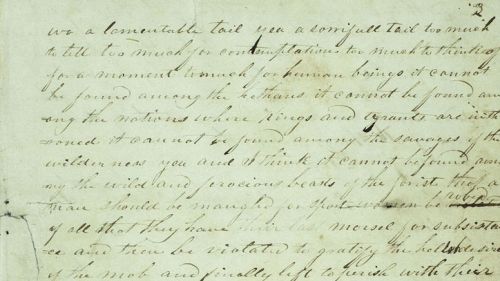 2
wo a lamentable tail yea a sorrifull tail too much
to tell too much for contemplation too much to think of
for a moment to much for human beings it cannot
be found among the hethans it cannot be found am
ong the nations where Kings and tyrants are inth
roned it cannot be found among the savages of the
wilderness yea and I think it cannot be found amo
ng the wild and ferocious beasts of the forist that a
man should be mangled for sport women be robed
of all that they have their last morsel for subsistan
ce and then be violated to gratify the hellish desires
of the mob and finally left to perish with their